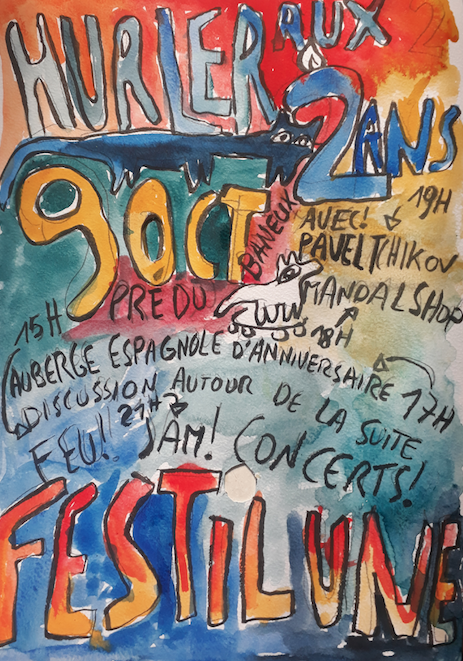 HURLER AUX
2 ANS
9 OCT
19H
AVEC!
PAVEL TCHIKOV
PRE DU BANEUX
MANDALSHOP
15H
18H
AUBERGE ESPAGNOLE D'ANNIVERSAIRE 17H
DISCUSSION AUTOUR DE LA SUITE
21H?
FEU! JAM! CONCERTS!
FESTILUNE